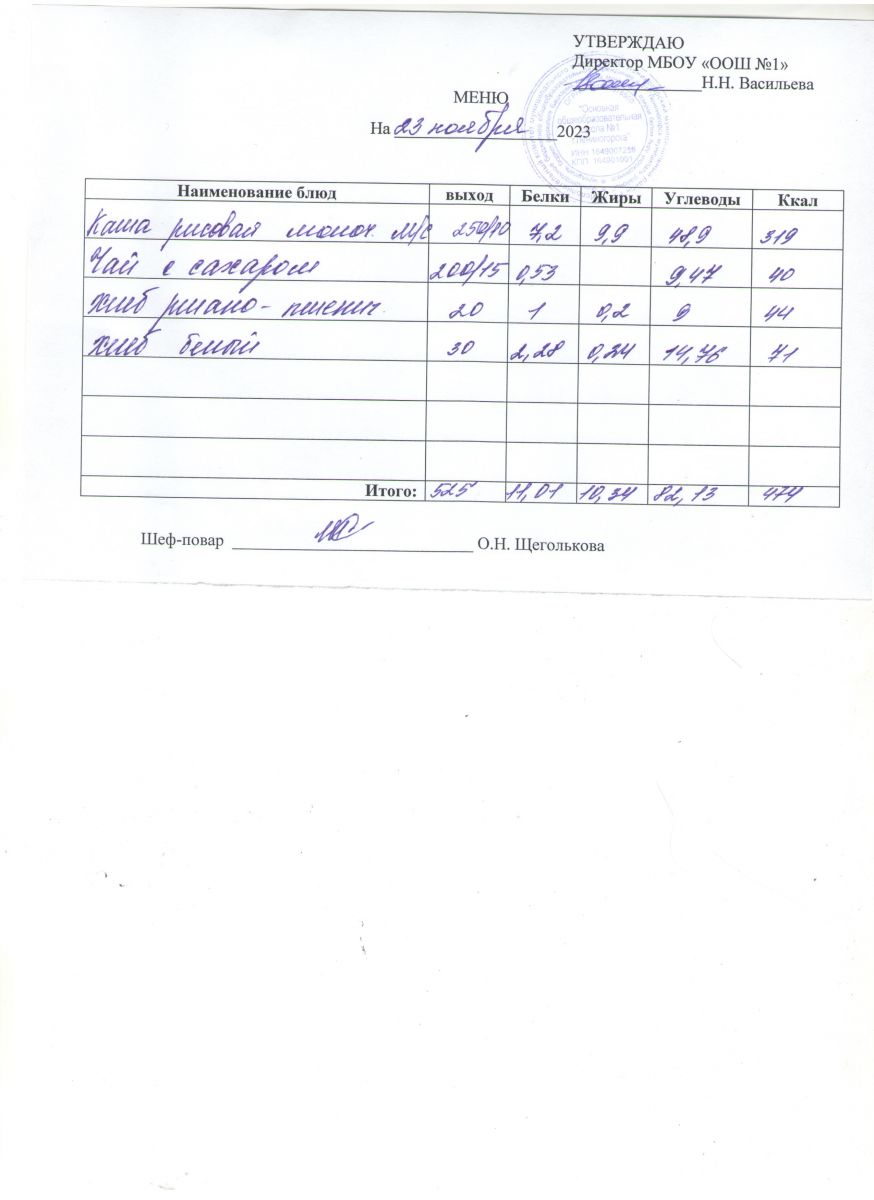 УТВЕРЖДАЮ
Директор МБОУ «ООШ №1»
Н.Н. Васильева
МЕНЮ
На 23 ноября 2023
"Основная
общеобразовательная
школа №1
г.Лениногорска"
ИНН 1649007256
КПП 164901001
Наименование блюд выход Белки Жиры Углеводы Ккал
Каша рисовая молоч. м/с 250/10 7,2 9,9 48,9 319
Чай с сахаром 200/15 0,53 9,47 40
Хлеб ржано-пшенич. 20 1 0,2 9 44
Хлеб белый 30 2,28 0,24 14,76 71
Итого: 525 11,01 10,34 82,13 474
Шеф-повар О.Н. Щеголькова